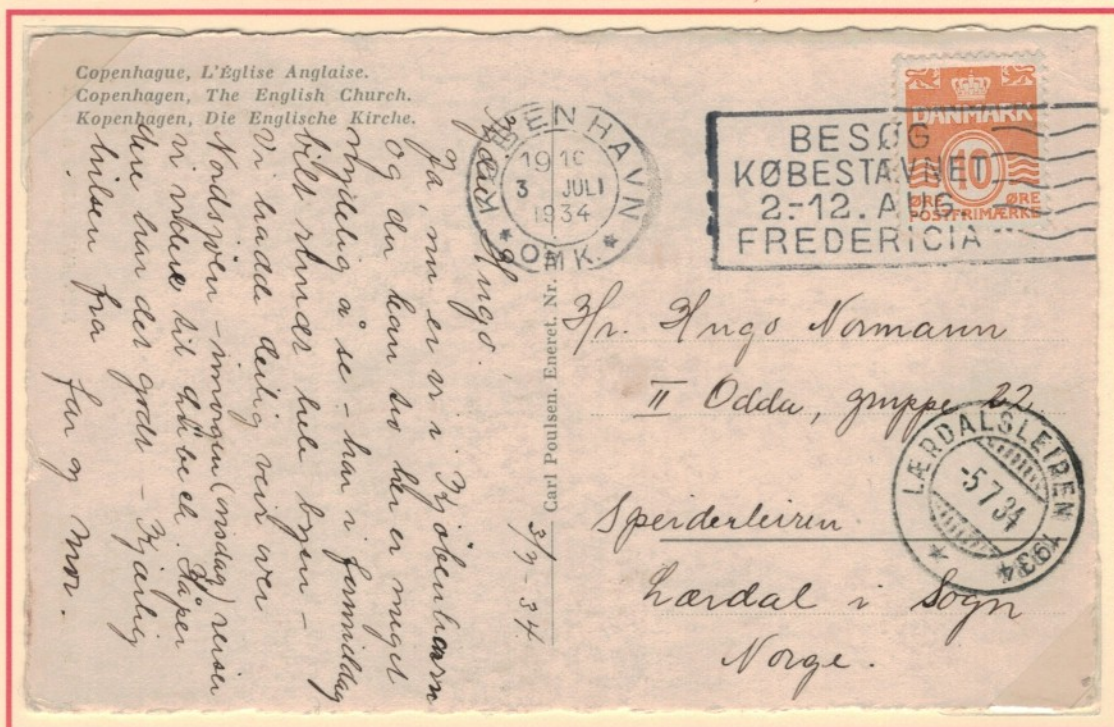 Copenhague, L'Église Anglaise.
Copenhagen, The English Church.
Kopenhagen, Die Englische Kirche.
KØBENHAVN
19 1
3 JULI
1934
OMK.
BESØG
KØBESTAVNET
2.-12. AUG.
FREDERICIA
DANMARK
10
ØRE ØRE
POSTFRIMÆRKE
Kjære Hugo!
Ja, nu er vi i Kjøbenhavn
og du kan tro her er meget
nydelig å se – har i formiddag
bilt rundt hele byen –
Vi hadde deilig veir over
Nordsjøen – imorgen (onsdag) reiser
vi videre til Lübeck. Håper
dere har det godt – Kjærlig
hilsen fra
far og mor.
3/7-34.
Carl Poulsen. Eneret. Nr.
Hr. Hugo Normann
II Odda, gruppe 22.
Speiderleiren
Lærdal i Sogn
Norge.
LÆRDALSLEIREN 1934
-5.7.34